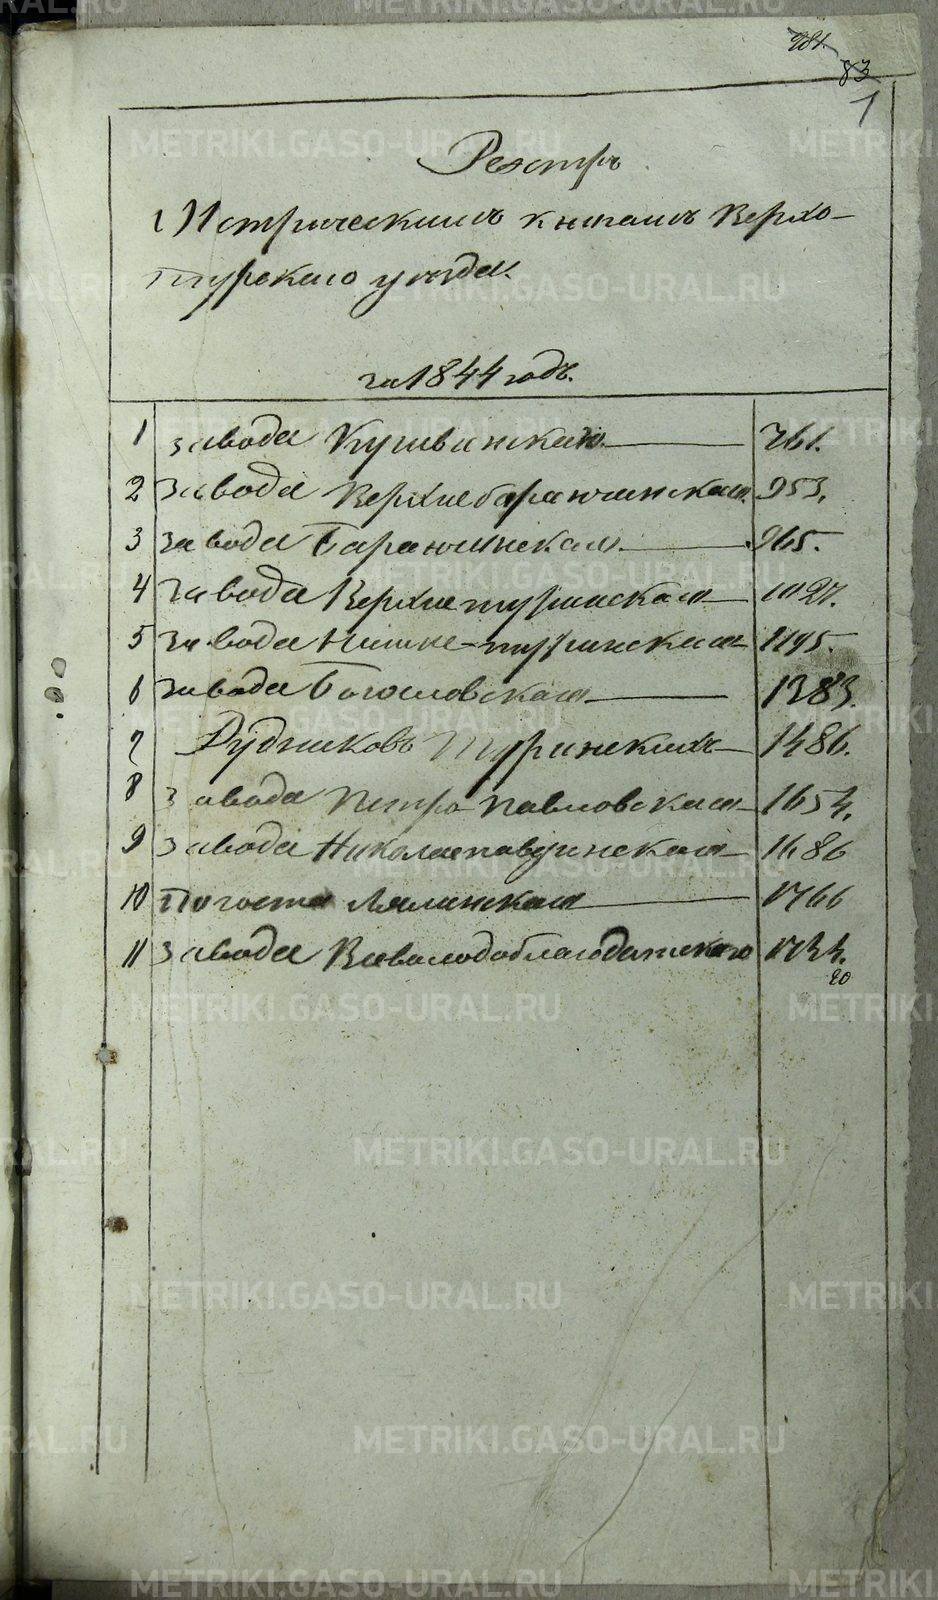 281.
83
1
Реэстръ
Метрическимъ книгамъ Верхо-
турскаго уезда.
за 1844 годъ.
1 завода Кушвинскаго 761.
2 завода Верхнебаранчинскаго. 953.
3 завода Баранчинскаго 965.
4 завода Верхнетуринскаго 1027.
5 завода Нижне-туринскаго 1195.
6 завода Богословскаго 1383.
7 Рудниковъ Туринскихъ 1486.
8 завода Петропавловскаго 1654.
9 завода Николаепавдинскаго 1686
10 Погоста Лялинскаго 1766
11 завода Всеволодоблагодатскаго
20
METRIKI.GASO-URAL.RU